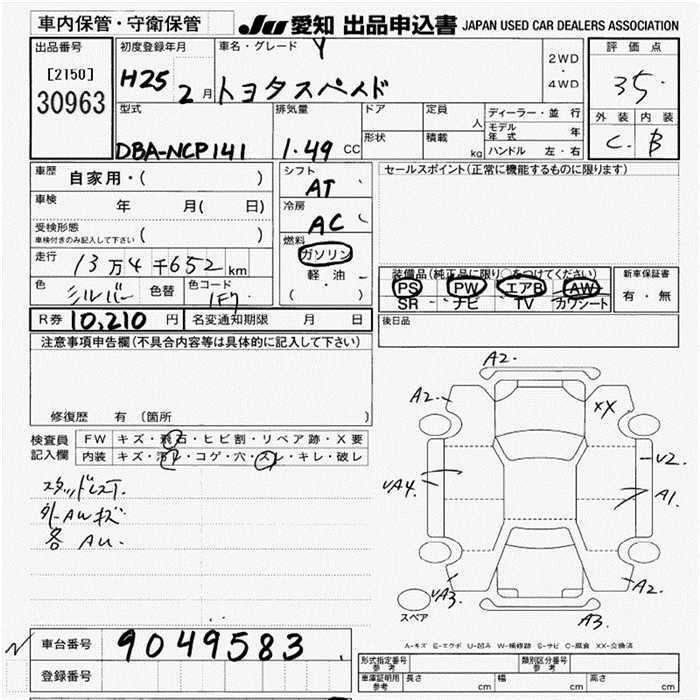 車内保管・守衛保管
JU 愛知 出品申込書 JAPAN USED CAR DEALERS ASSOCIATION
出品番号
[2150]
30963
初度登録年月
H25 2月
車名・グレード
トヨタスペイド Y
2WD
・
4WD
評価点
3.5
外装 内装
C B
型式
DBA-NCP141
排気量
1.49 CC
ドア
形状
定員 人
積載 kg
ディーラー・並行
モデル年式 年
ハンドル 左・右
車歴 自家用・( )
車検 年 月( 日)
受検形態
車検付きのみ記入して下さい ( )
走行 13万4千652km
色 シルバー 色替 色コード 1F7
シフト
AT
冷房
AC
燃料
ガソリン
軽・油
( )
セールスポイント(正常に機能するものに限ります)
装備品(純正品に限り○をつけてください)
PS PW エアB AW
SR ナビ TV カワシート
新車保証書
有・無
R券 10,210 円 名変通知期限 月 日
後日品
注意事項申告欄(不具合内容等は具体的に記入して下さい)
修復歴 有(箇所 )
検査員記入欄
FW キズ・飛石・ヒビ割・リペア跡・X要
内装 キズ・汚レ・コゲ・穴・スレ・キレ・破レ
スタッドレスT.
外-AWキズ
各 AU.
A2.
A2.
XX
U2.
UA4.
A1.
UA3.
A2.
A3.
スペア
A-キズ E-エクボ U-凹み W-補修跡 S-サビ C-腐食 XX-交換済
車台番号 9049583
登録番号
型式指定番号 参考
類別区分番号 参考
車庫証明用 参考 長さ cm 幅 cm 高さ cm